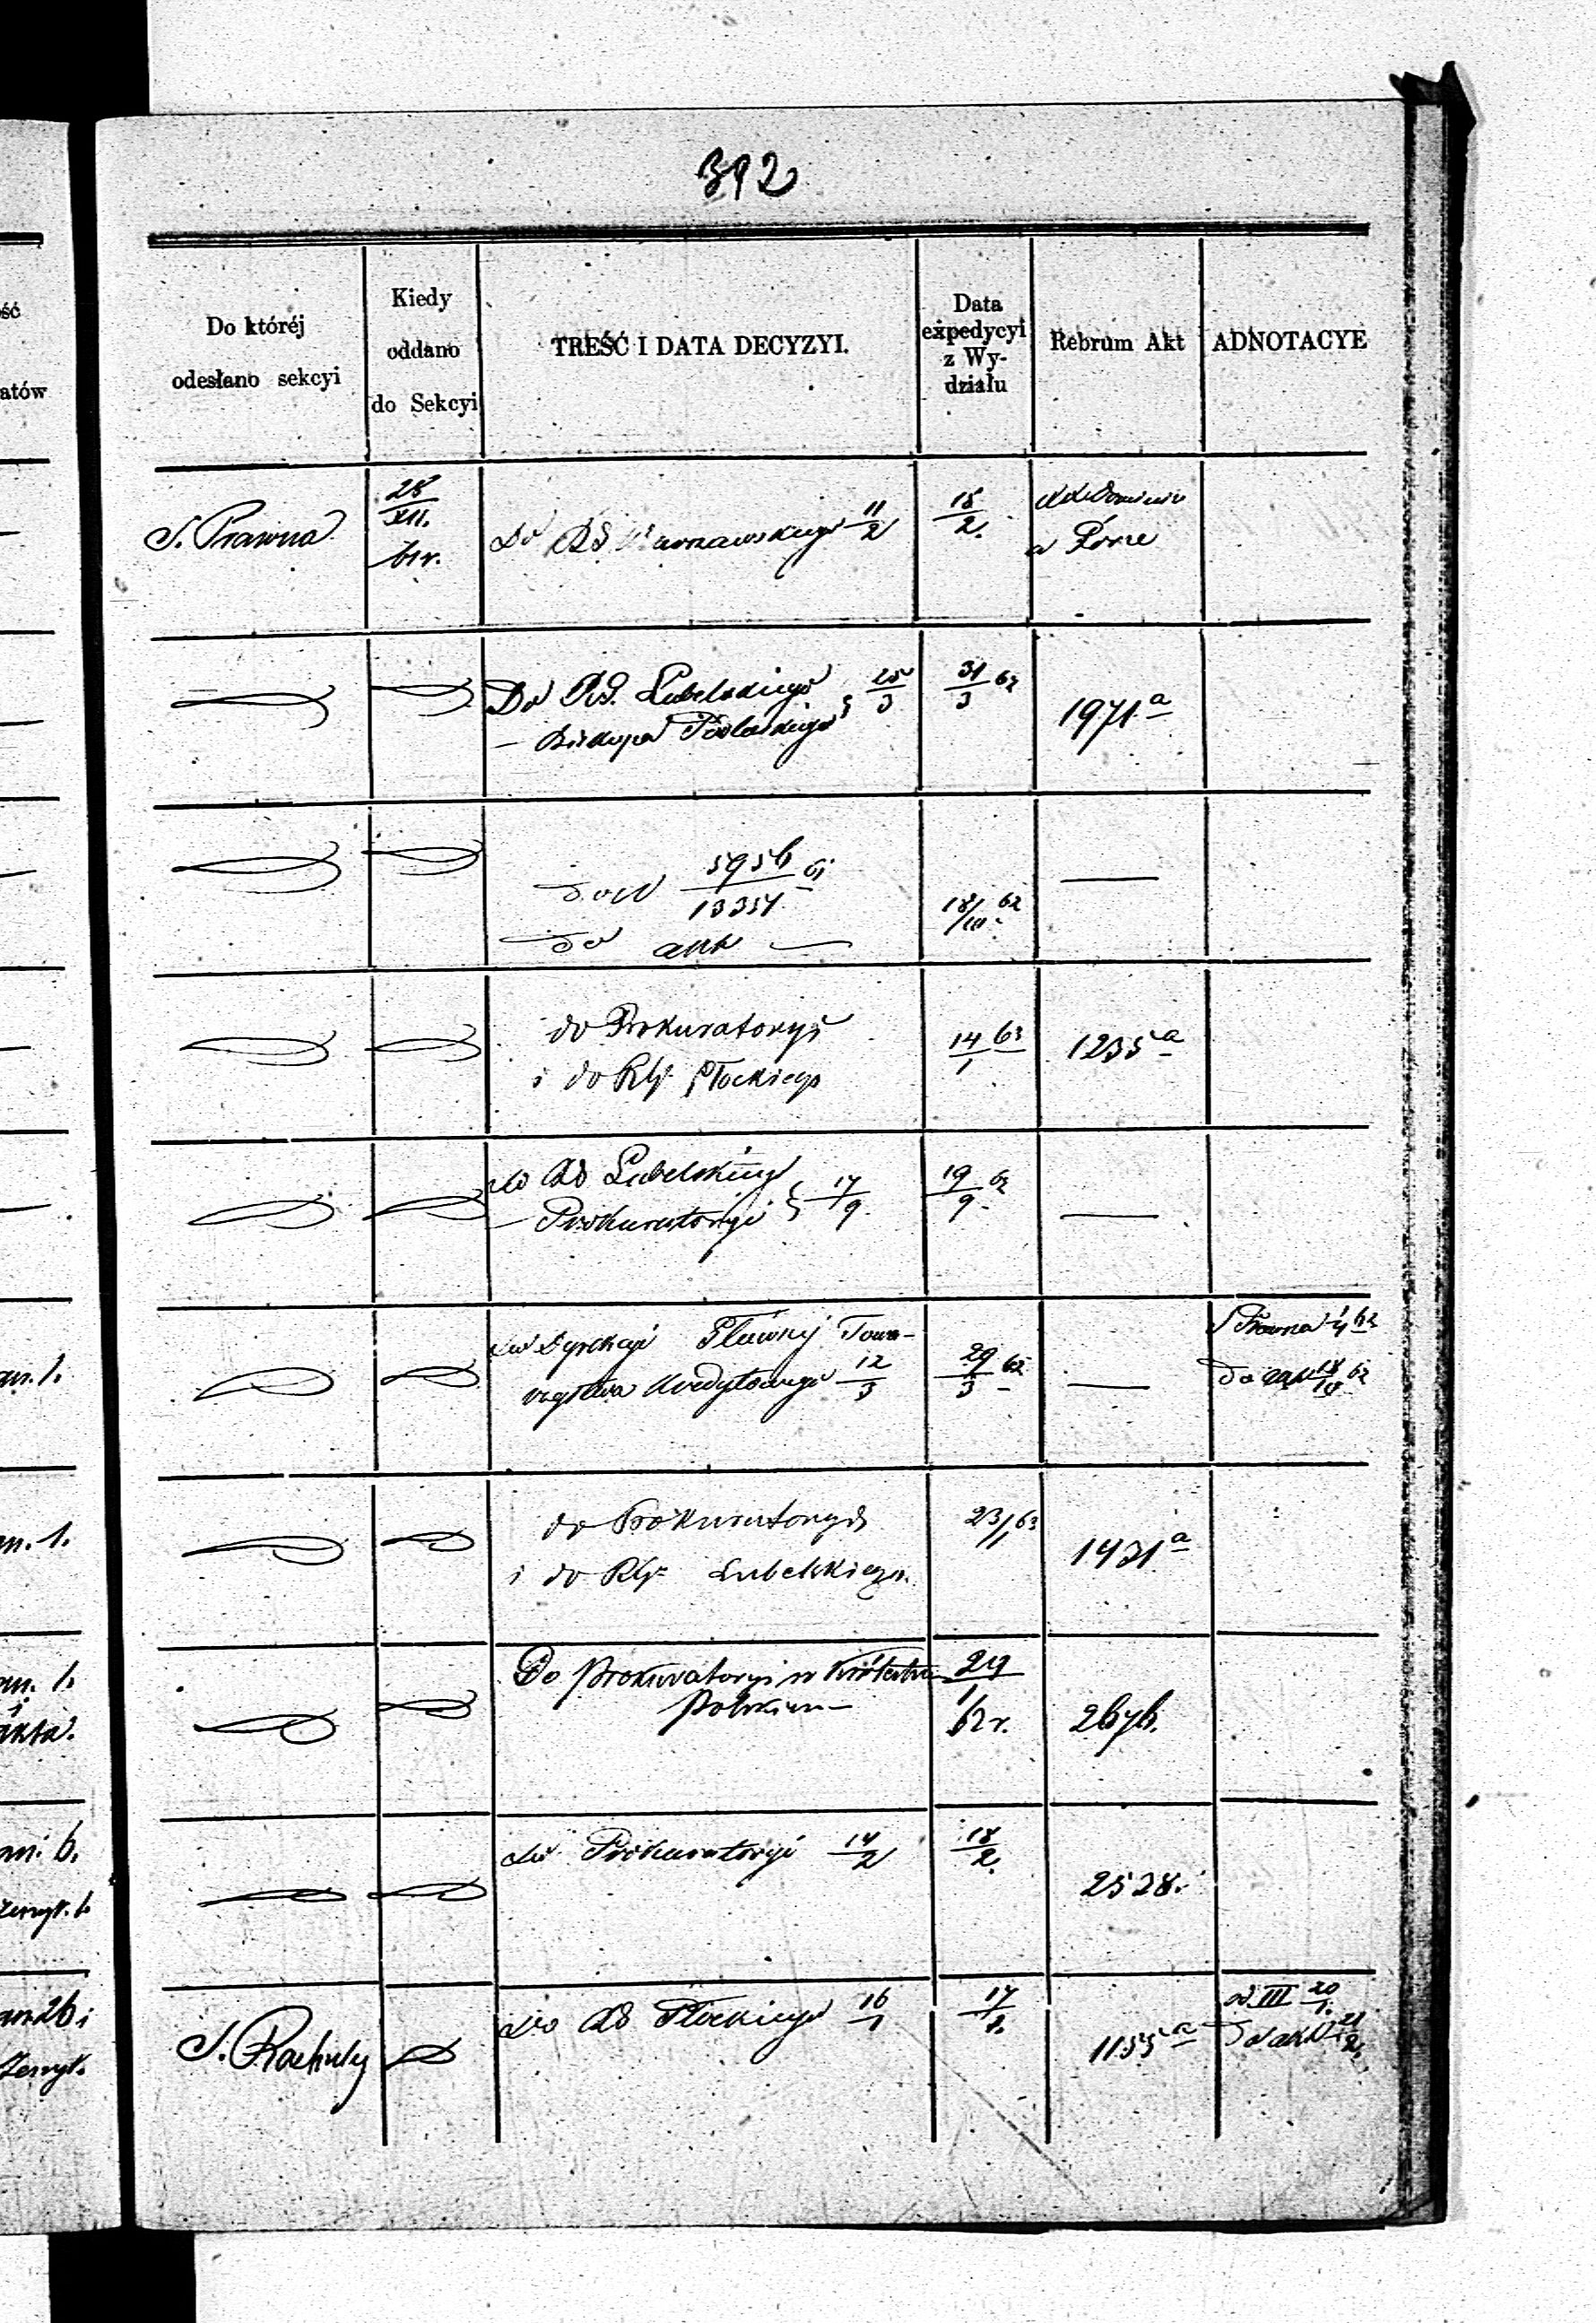 392
Do któréj
odesłano sekcyi
Kiedy
oddano
do Sekcyi
TREŚĆ I DATA DECYZYI.
Data
expedycyi
z Wy-
działu
Rebrum Akt
ADNOTACYE
S. Prawna
28/XII.
61 r.
Do RG Warszawskiego 11/2
18/2.
Do RG. Lubelskiego
— Biskupa Podlaskiego } 25/3
31/3 62
1971 a
do N 5956/13354 61
do akt —
18/10 62
—
do Prokuratoryi
i do RG Płockiego
14/1 63
1235 a
do RG Lubelskiego
— Prokuratoryi } 17/9
19/9 62
—
do Dyrekcyi Głównej Towa-
rzystwa Kredytowego 12/3
29/3 62
—
S Prawna 1/4 62
do akt 18/10 62
do Prokuratoryi
i do RG Lubelskiego.
23/1 63
1431 a
Do Prokuratoryi w Królestwie
Polskiem —
29/1
62 r.
2676.
do Prokuratoryi 14/2
18/2.
2528.
S. Rachuby
do RG Płockiego 16/1
17/1.
1155 a
od III 20/1.
do akt 21/2.